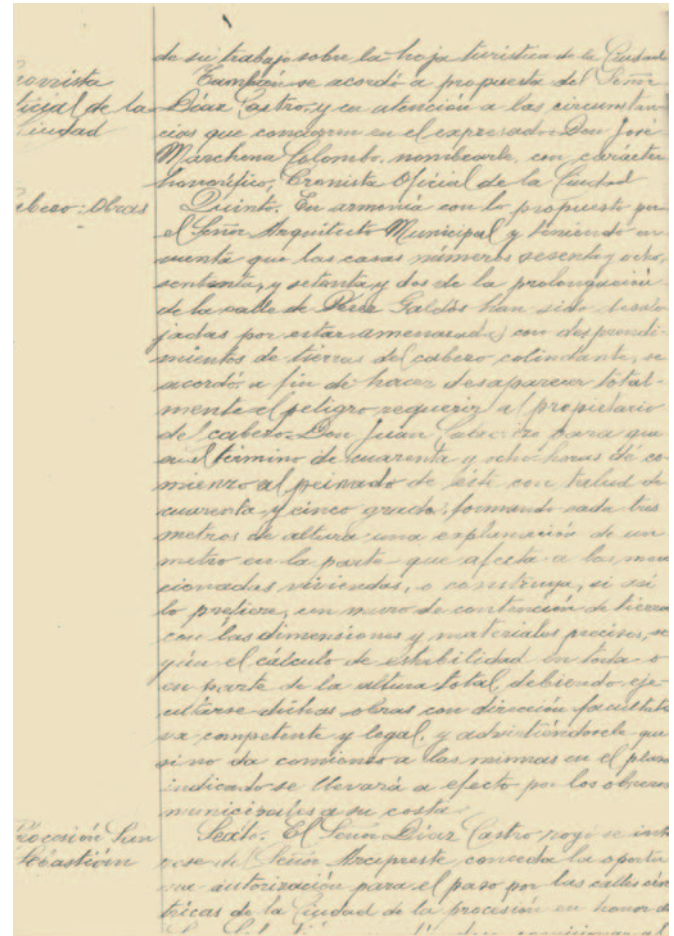 de su trabajo sobre la hoja turística de la Ciudad
ronista
icial de la
Ciudad
También se acordó a propuesta del Señor
Díaz Castro, y en atención a las circunstan-
cias que concurren en el expresado Don José
Marchena Colombo, nombrarle, con carácter
honorífico, Cronista Oficial de la Ciudad
abezo: Obras
Quinto. En armonía con lo propuesto por
el Señor Arquitecto Municipal y teniendo en
cuenta que las casas números sesenta y ocho,
setenta, y setenta y dos de la prolongación
de la calle de Pérez Galdós han sido desalo-
jadas por estar amenazadas con desprendi-
mientos de tierras del cabezo colindante, se
acordó a fin de hacer desaparecer total-
mente el peligro requerir al propietario
del cabezo Don Juan para que
en el término de cuarenta y ocho horas dé co-
mienzo al peinado de éste con talud de
cuarenta y cinco grados formando cada tres
metros de altura una explanación de un
metro en la parte que afecta a las men
cionadas viviendas, o construya, si así
lo prefiere, un muro de contención de tierra
con las dimensiones y materiales precisos, se
gún el cálculo de estabilidad en toda o
en parte de la altura total, debiendo eje-
cutarse dichas obras con dirección facultati
va competente y legal, y advirtiéndosele que
si no da comienzo a las mismas en el plazo
indicado se llevará a efecto por los obreros
municipales a su costa.
rocesión San
Sebastián
Sexto. El Señor Díaz Castro rogó se inte
rese del Señor Arcipreste conceda la oportu
na autorización para el paso por las calles cén
tricas de la Ciudad de la procesión en honor de